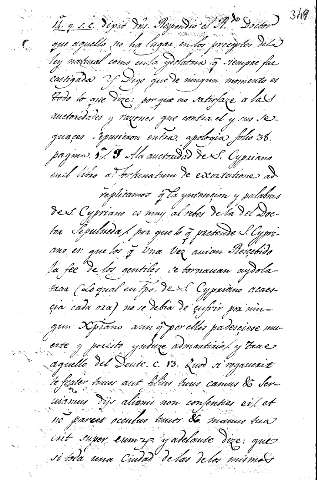 349
14. q. s. c. dignū dño. Respondio el R.do Doctor
que aquello no ha lugar en los preceptos de la
ley natural como en la ydolatria q̃ siempre fue
castigada. Digo que de ningun momento es
todo lo que dize: porque no satisfaze a las
autoridades y razones que contra el y sus se
quaces a pusieron en tra. apologia folio 38.
pagina A la autoridad de S. Cypriano
en el libro de exortatione ad
replicamos q̃ la yntencion y palabras
de S. Cypriano es muy al reves de la del Doc
tor Sepulueda, porque lo q̃ pretende S. Cypri
ano es que los q̃ una vez avian Recebido
la fee de los gentiles se tornavan a ydola
trar (lo qual en tpo de S. Cypriano acaes
cia cada ora) no se debia de çufrir por nin
gun Xpiano aun q̃ por ellos padeciese mu
erte y por esto ynduze ad martirio, y trae
aquello del Deute. c. 13. Quod si rogaverit
te frater tuus aut filius tuus
dijs alienis non consenties ei, et
nō parcet oculus tuus manus tua
erit super eum &c. y adelante dize: que
si toda una Ciudad de las de los mismos